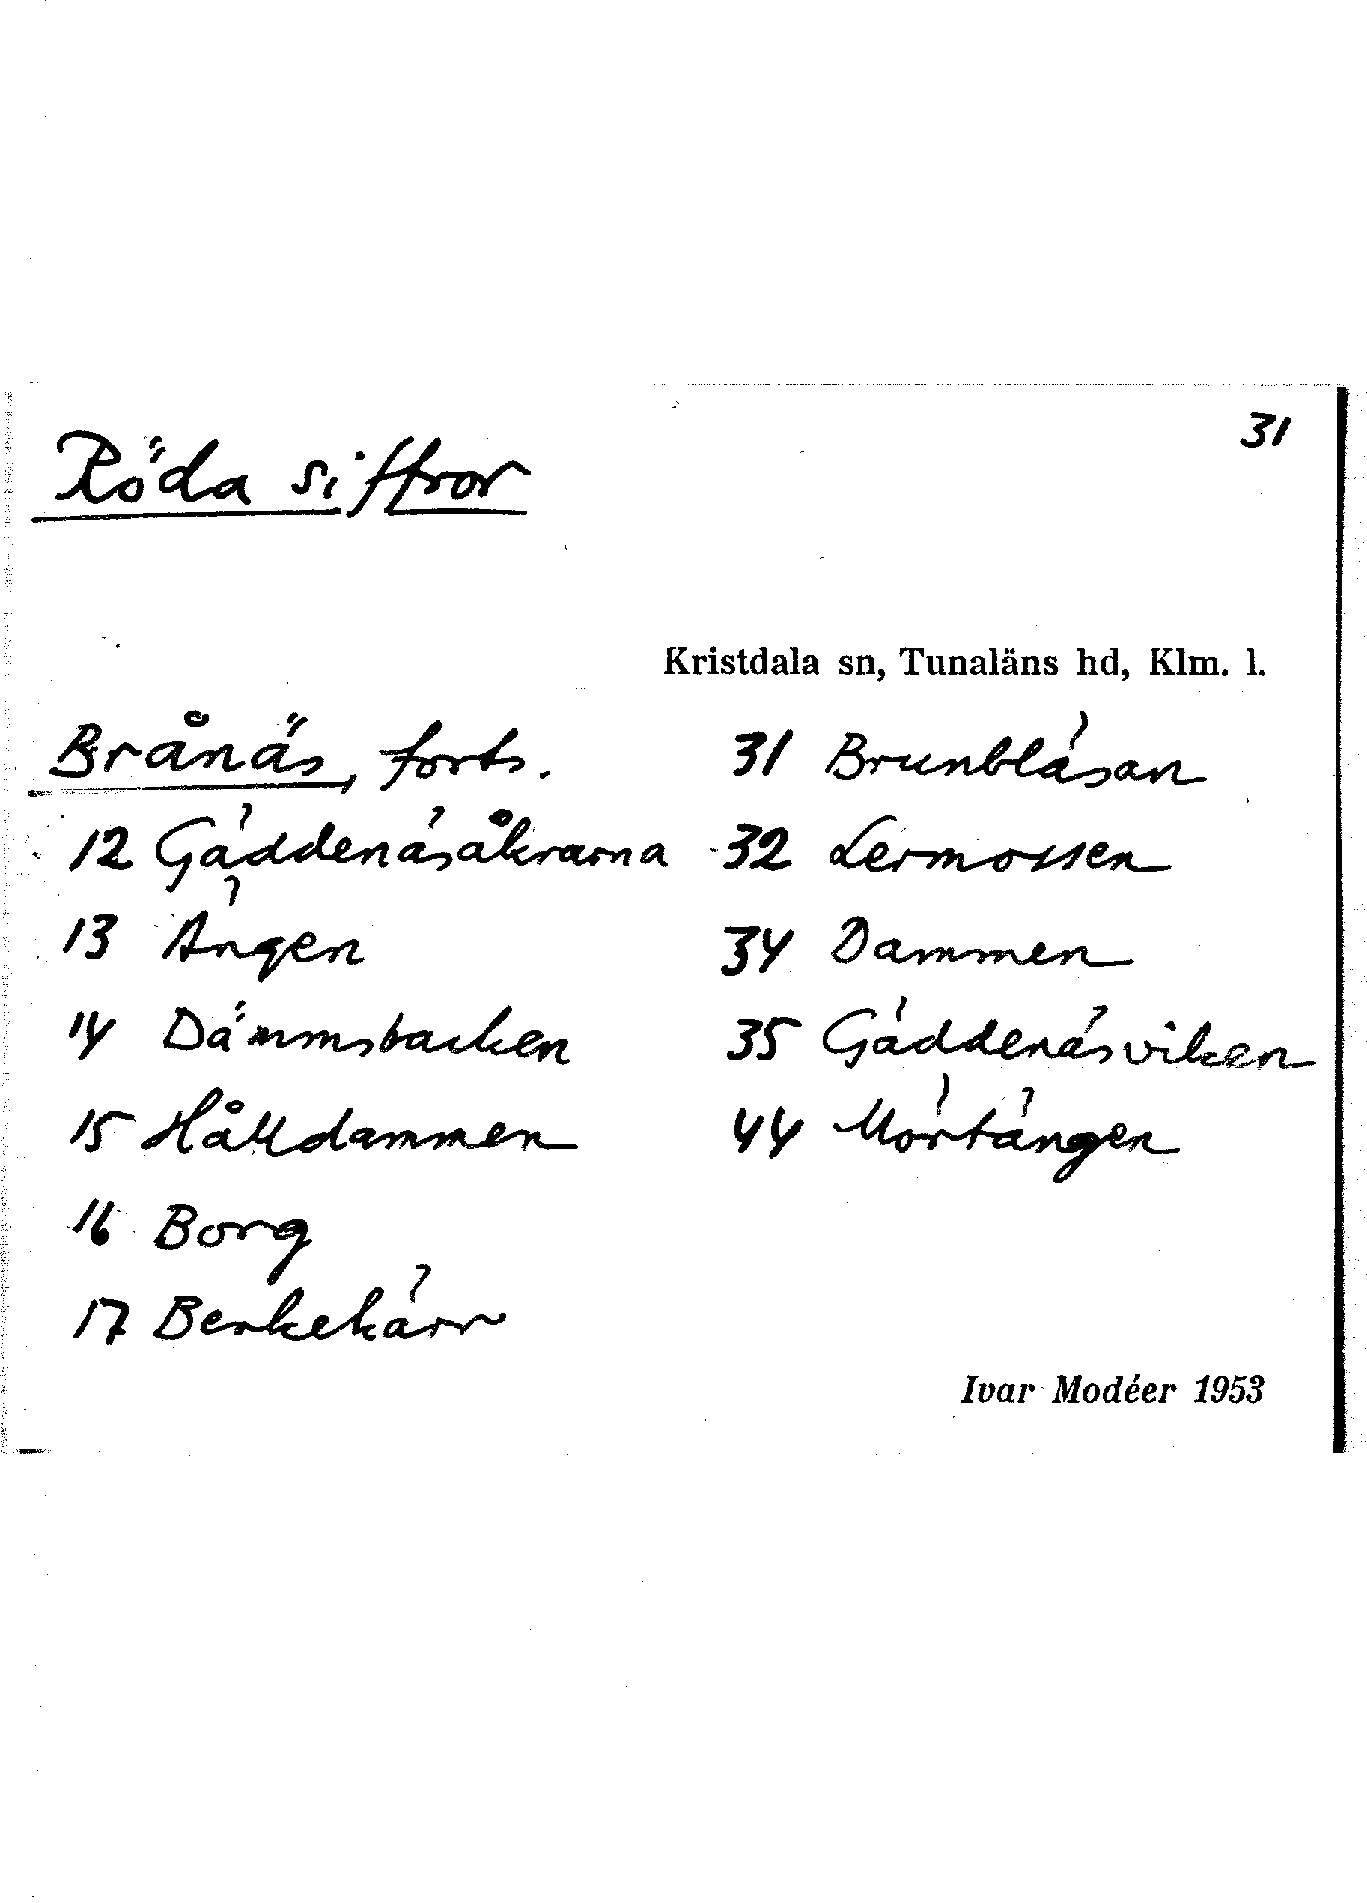 31
Röda siffror
Kristdala sn, Tunaläns hd, Klm. l.
Brånäs, forts.
12 Gäddenäsåkrarna
13 Ängen
14 Dämmsbacken
15 Hålldammen
16 Borg
17 Berkekärr
31 Brunbläsan
32 Lermossen
34 Dammen
35 Gäddenäsviken
44 Mörtängen
Ivar Modéer 1953